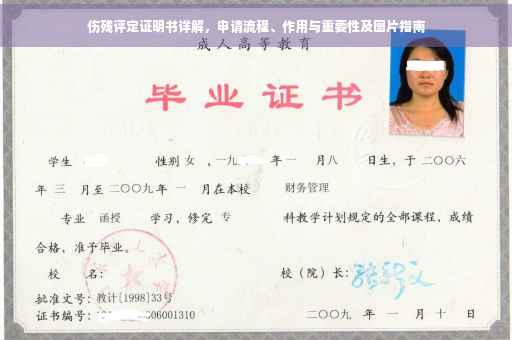 伤残评定证明书详解，申请流程、作用与重要性及图片指南
成人高等教育
毕业证书
学生 性别 女 ，一九 年 一 月八 日生，于 二〇〇六
年 三 月至 二〇〇九 年 一 月在本校 财务管理
专业 函授 学习，修完 专 科教学计划规定的全部课程，成绩
合格，准予毕业。
校 名： 校（院）长：
批准文号：教计[1998]33号
证书编号： 006001310 二〇〇九 年 一 月 十 日